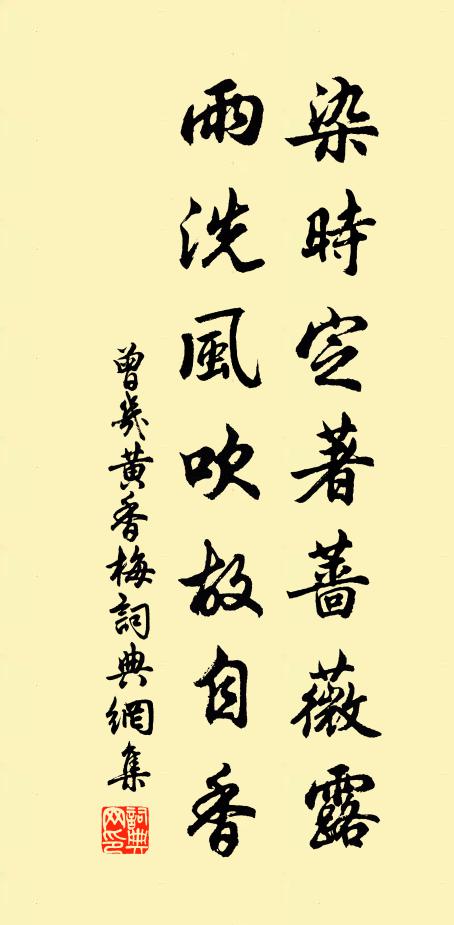 染時定著薔薇露
雨洗風吹故自香
曾幾黄香梅詞典網集
詞典
网印